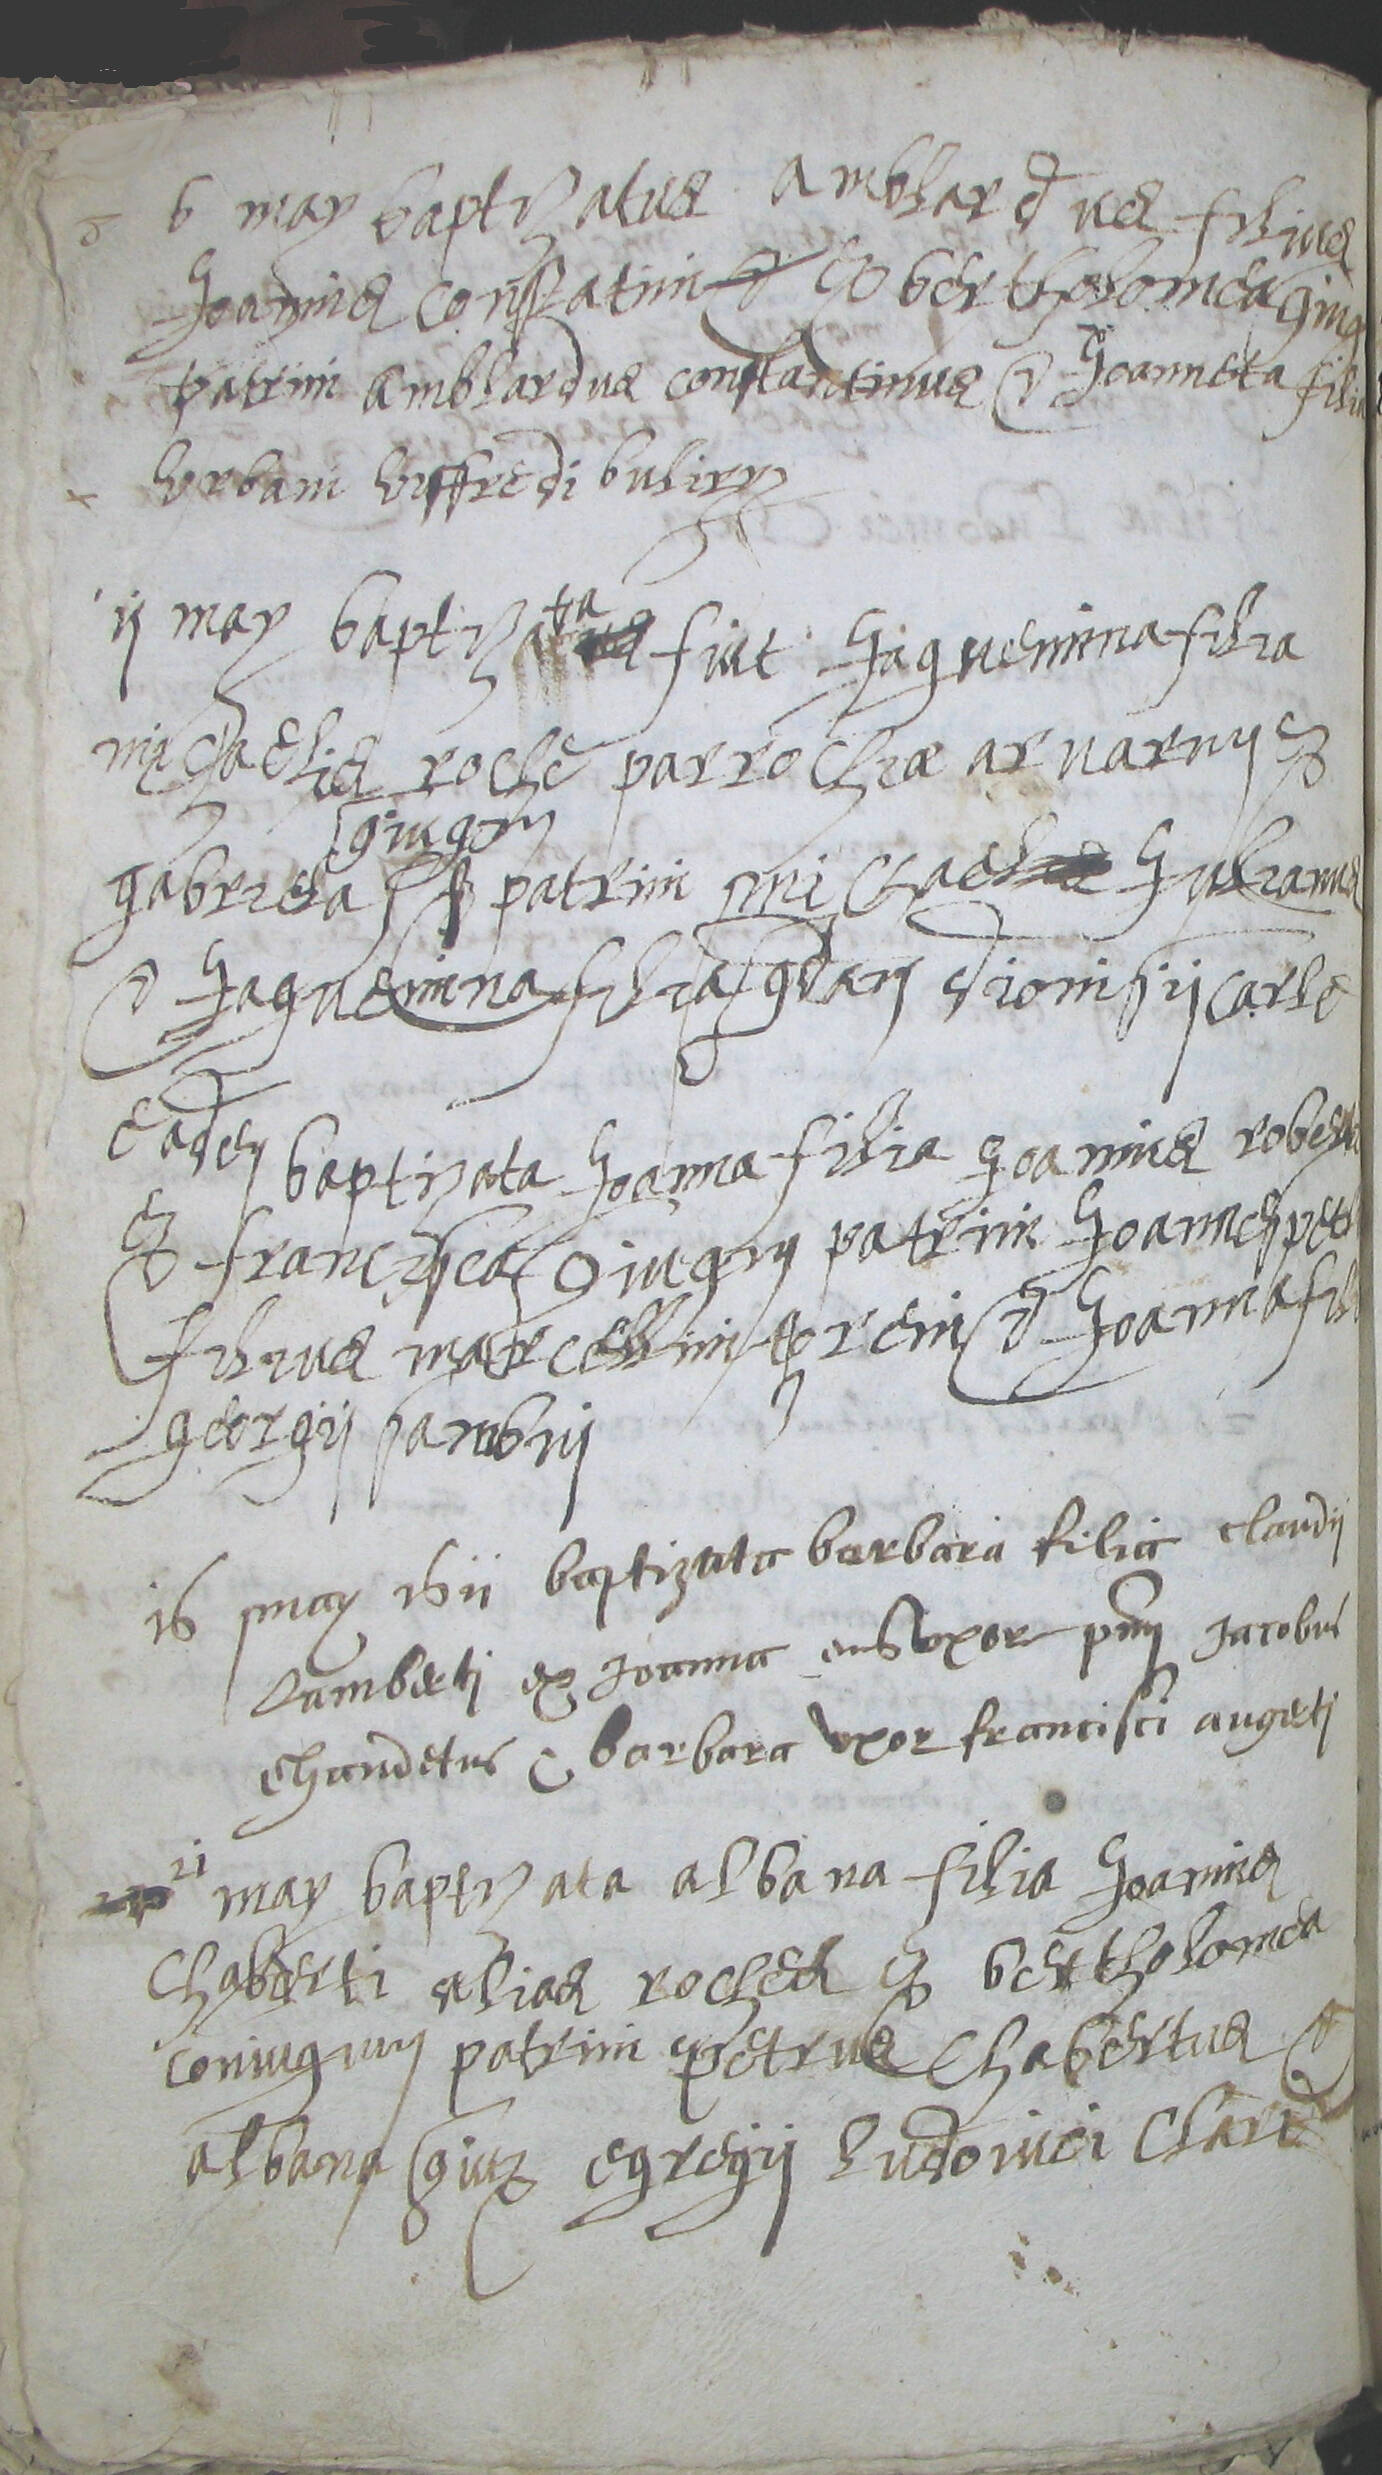 6 may baptizatus amblardus filius
Joannis constantini & bertholomea giug
patrini amblardus constantinus & Joanneta filia
Urbani Viffredi
ij may baptizata fuit Jaquemina filia
michaelis roche parrochiæ arvarnij &
giugm
gabriela patrini michael Julianus
& Jaquemina filia dionisij carle
eadem baptizata Joanna filia Joannis roberti
& francisca giugum patrini Joannes petrus
filius marcellini & Joanna filia
georgij
16 may baptizata barbara filia claudij
Lamberti ex Joanna eius uxor pnj Jacobus
chaudetus & barbara uxor francisci augerti
21 may baptizata albana filia Joannis
Chaberti alias roches & bertholomea
coniugum patrini petrus Chabertus &
albana giux egregij Ludovici Clare